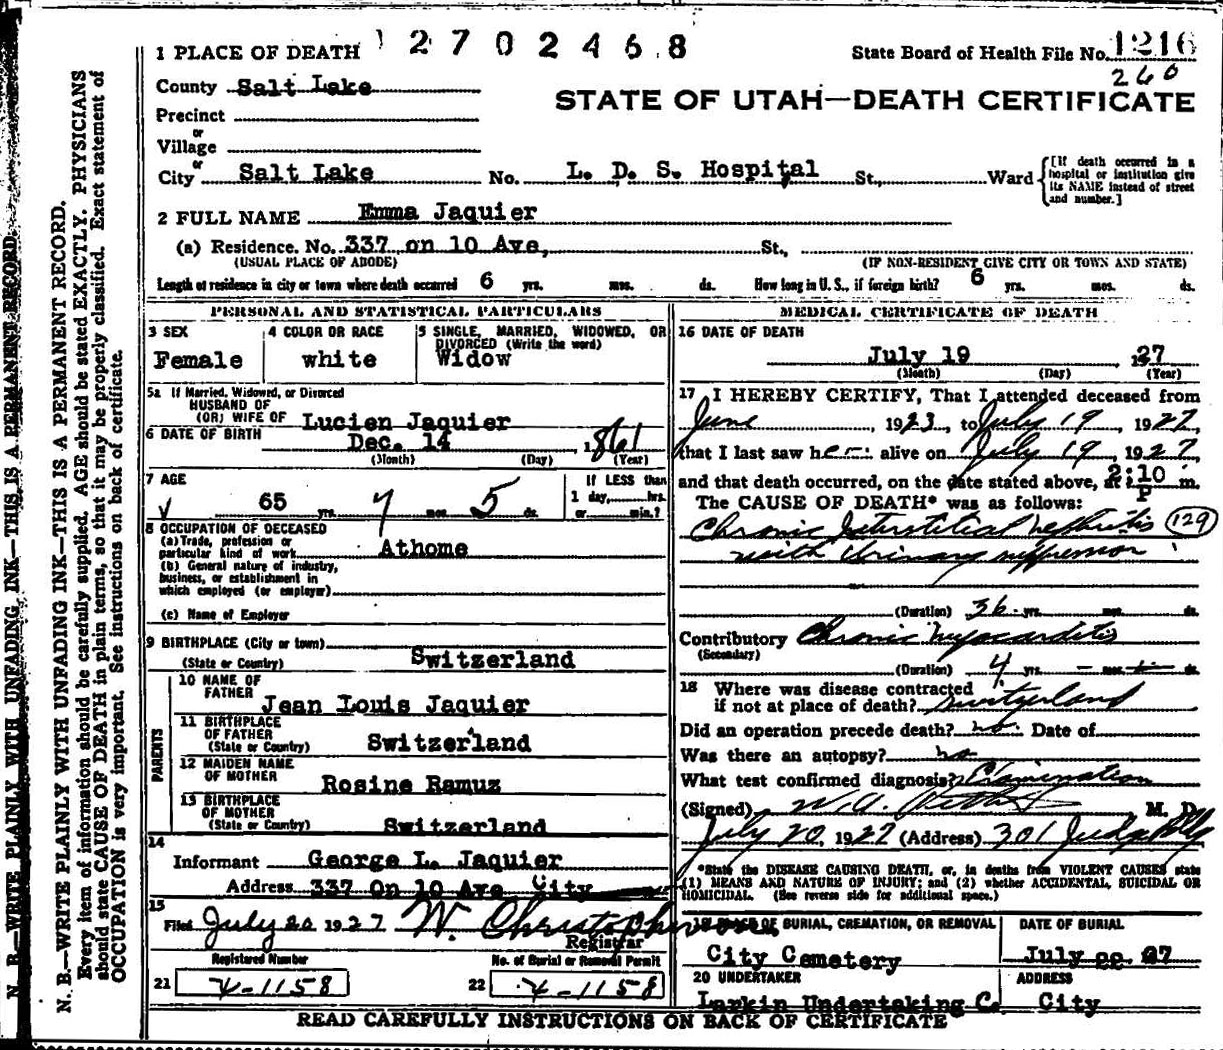 1 PLACE OF DEATH 12702468 State Board of Health File No. 1216
260
County Salt Lake
STATE OF UTAH—DEATH CERTIFICATE
Precinct
or
Village
or
City Salt Lake No. L. D. S. Hospital St., Ward
[If death occurred in a
hospital or institution give
its NAME instead of street
and number.]
2 FULL NAME Emma Jaquier
(a) Residence. No. 337 on 10 Ave, St.,
(USUAL PLACE OF ABODE) (IF NON-RESIDENT GIVE CITY OR TOWN AND STATE)
Length of residence in city or town where death occurred 6 yrs. mos. ds. How long in U. S., if foreign birth? 6 yrs. mos. ds.
PERSONAL AND STATISTICAL PARTICULARS
3 SEX 4 COLOR OR RACE 5 SINGLE, MARRIED, WIDOWED, OR
DIVORCED (Write the word)
Female white Widow
5a If Married, Widowed, or Divorced
HUSBAND OF
(OR) WIFE OF Lucien Jaquier
6 DATE OF BIRTH Dec. 14, 1861
(Month) (Day) (Year)
7 AGE If LESS than
65 yrs. 7 mos. 5 ds. 1 day, hrs.
or min.?
8 OCCUPATION OF DECEASED
(a) Trade, profession or
particular kind of work Athome
(b) General nature of industry,
business, or establishment in
which employed (or employer)
(c) Name of Employer
9 BIRTHPLACE (City or town)
(State or Country) Switzerland
PARENTS
10 NAME OF
FATHER Jean Louis Jaquier
11 BIRTHPLACE
OF FATHER
(State or Country) Switzerland
12 MAIDEN NAME
OF MOTHER Rosine Ramuz
13 BIRTHPLACE
OF MOTHER
(State or Country) Switzerland
14
Informant George L. Jaquier
Address 337 On 10 Ave City
15
Filed July 20 1927 W. Christopherson
Registrar
Registered Number No. of Burial or Removal Permit
21 X-1158 22 X-1158
MEDICAL CERTIFICATE OF DEATH
16 DATE OF DEATH
July 19 1927
(Month) (Day) (Year)
17 I HEREBY CERTIFY, That I attended deceased from
June, 1923, to July 19, 1927,
that I last saw her alive on July 19, 1927,
and that death occurred, on the date stated above, at 2:10 P m.
The CAUSE OF DEATH* was as follows:
Chronic Interstitial Nephritis (129)
with Urinary suppression
(Duration) 36 yrs. mos. ds.
Contributory Chronic Myocarditis
(Secondary)
(Duration) 4 yrs. – mos. – ds.
18 Where was disease contracted
if not at place of death? Switzerland
Did an operation precede death? no. Date of
Was there an autopsy? no
What test confirmed diagnosis? Examination
(Signed) W. A. M. D.
July 20, 1927 (Address) 301 Judge Bldg
*State the DISEASE CAUSING DEATH, or, in deaths from VIOLENT CAUSES state
(1) MEANS AND NATURE OF INJURY; and (2) whether ACCIDENTAL, SUICIDAL OR
HOMICIDAL. (See reverse side for additional space.)
19 PLACE OF BURIAL, CREMATION, OR REMOVAL DATE OF BURIAL
City Cemetery July 22 27
20 UNDERTAKER ADDRESS
Larkin Undertaking C. City
READ CAREFULLY INSTRUCTIONS ON BACK OF CERTIFICATE
N. B.—WRITE PLAINLY WITH UNFADING INK—THIS IS A PERMANENT RECORD.
N. B.—WRITE PLAINLY WITH UNFADING INK—THIS IS A PERMANENT RECORD.
Every item of information should be carefully supplied. AGE should be stated EXACTLY. PHYSICIANS
should state CAUSE OF DEATH in plain terms, so that it may be properly classified. Exact statement of
OCCUPATION is very important. See instructions on back of certificate.